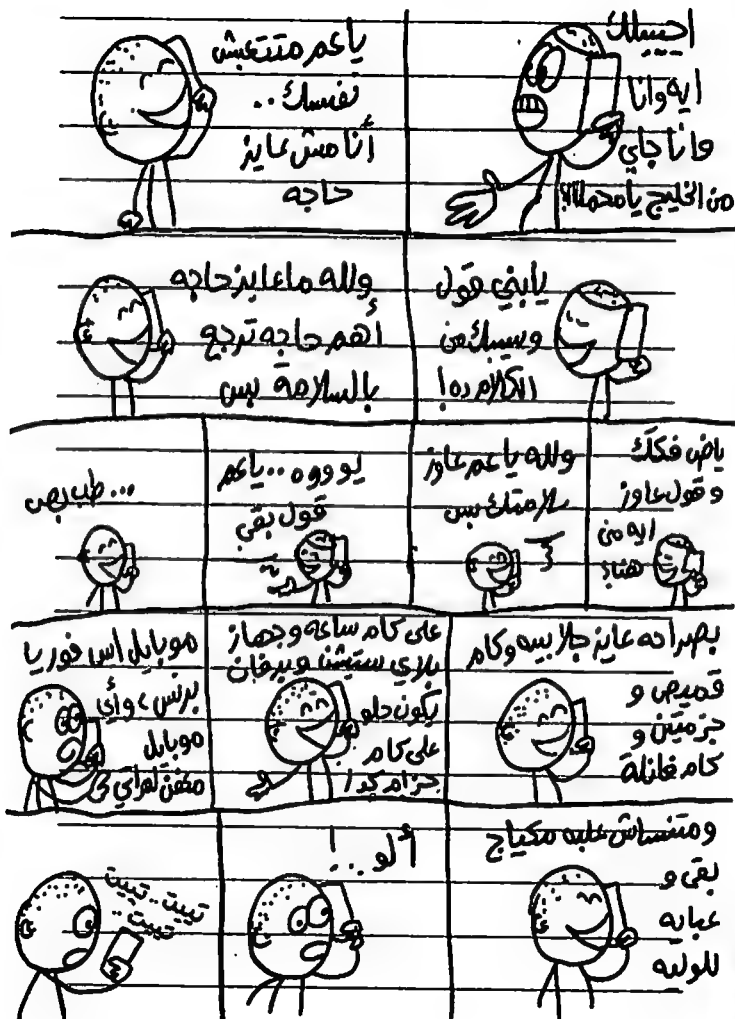 اجيبلك
ايه وانا
وانا جاي
من الخليج يا محمااا!
يا عم متتعبش
نفسك ..
أنا مش عايز
حاجه
يابني قول
وسيبك من
الكلام ده!
ولله ما عايز حاجه
أهم حاجه ترجع
بالسلامة بس
ياض فكك
وقول عاوز
ايه من
هنا؟
ولله يا عم عاوز
سلامتك بس
يووووه .. يا عم
قول بقي
... طب بص
بصراحه عايز جلابيه وكام
قميص و
جزمتين و
كام فانلة
على كام ساعه وجهاز
بلاي ستيشن وبرفان
يكون حلو
على كام
حزام كدا
موبايل اس فوريا
برنس، وأي
موبايل
لمراي
ومتنساش علبه مكياج
بقي و
عبايه
للوليه
ألو ...!
تييت .. تييت
.. تييت